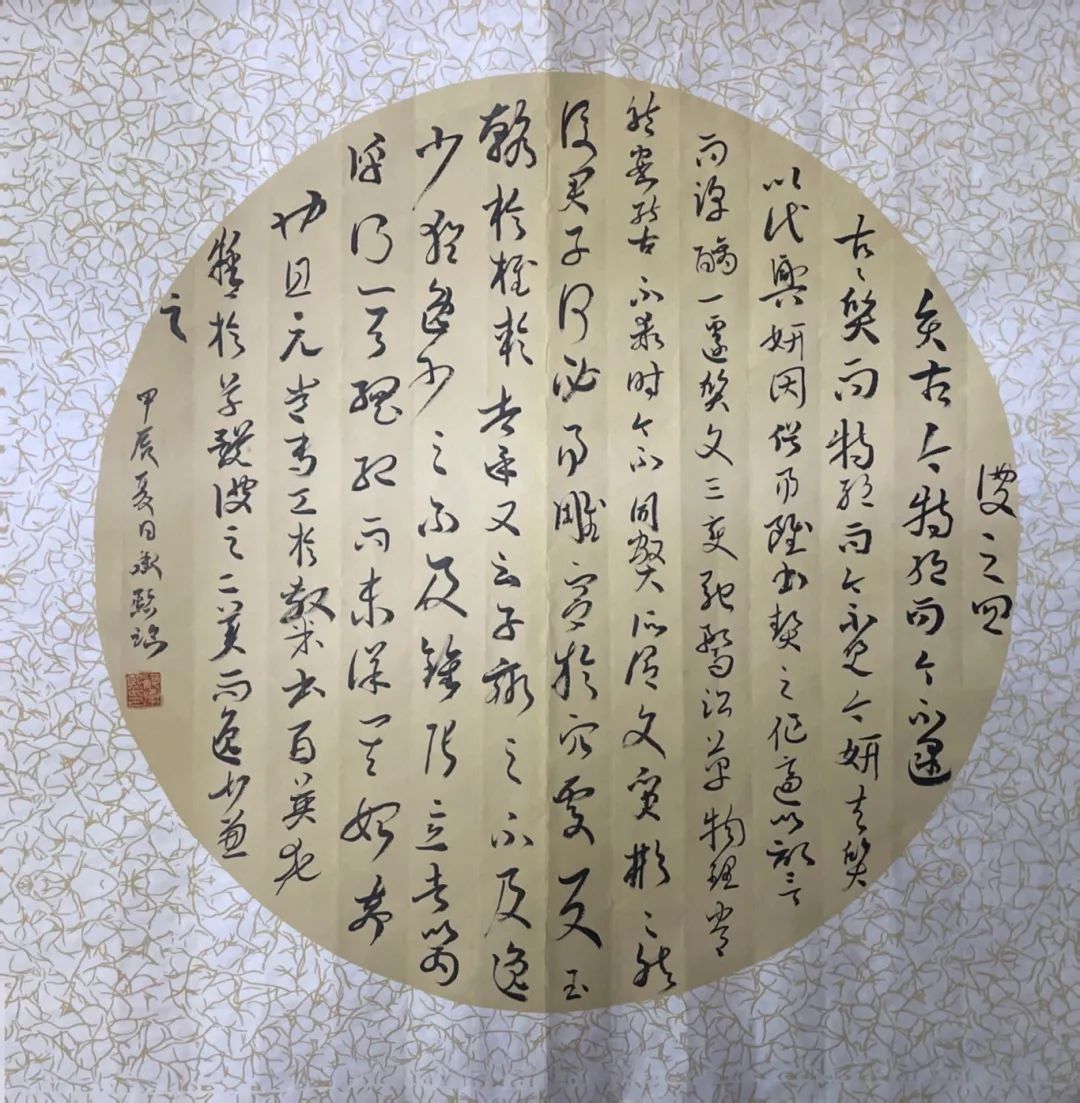 彼之四
賢古今特絕而今不逮
古古質而特絕而今不今妍夫質
以代興妍因俗易雖書契之作適以記言
而淳醨一遷質文三變馳騖沿革物理常
然貴能古不乖時今不同弊所謂文質彬彬然
後君子何必易雕宮於穴處反玉
輅於椎輪者乎又云子敬之不及逸
少猶逸少之不及鍾張意者以為
評得其綱紀而未詳其始卒
也且元常專工於隸書百英尤
精於草體彼之二美而逸少兼
之
甲辰夏日